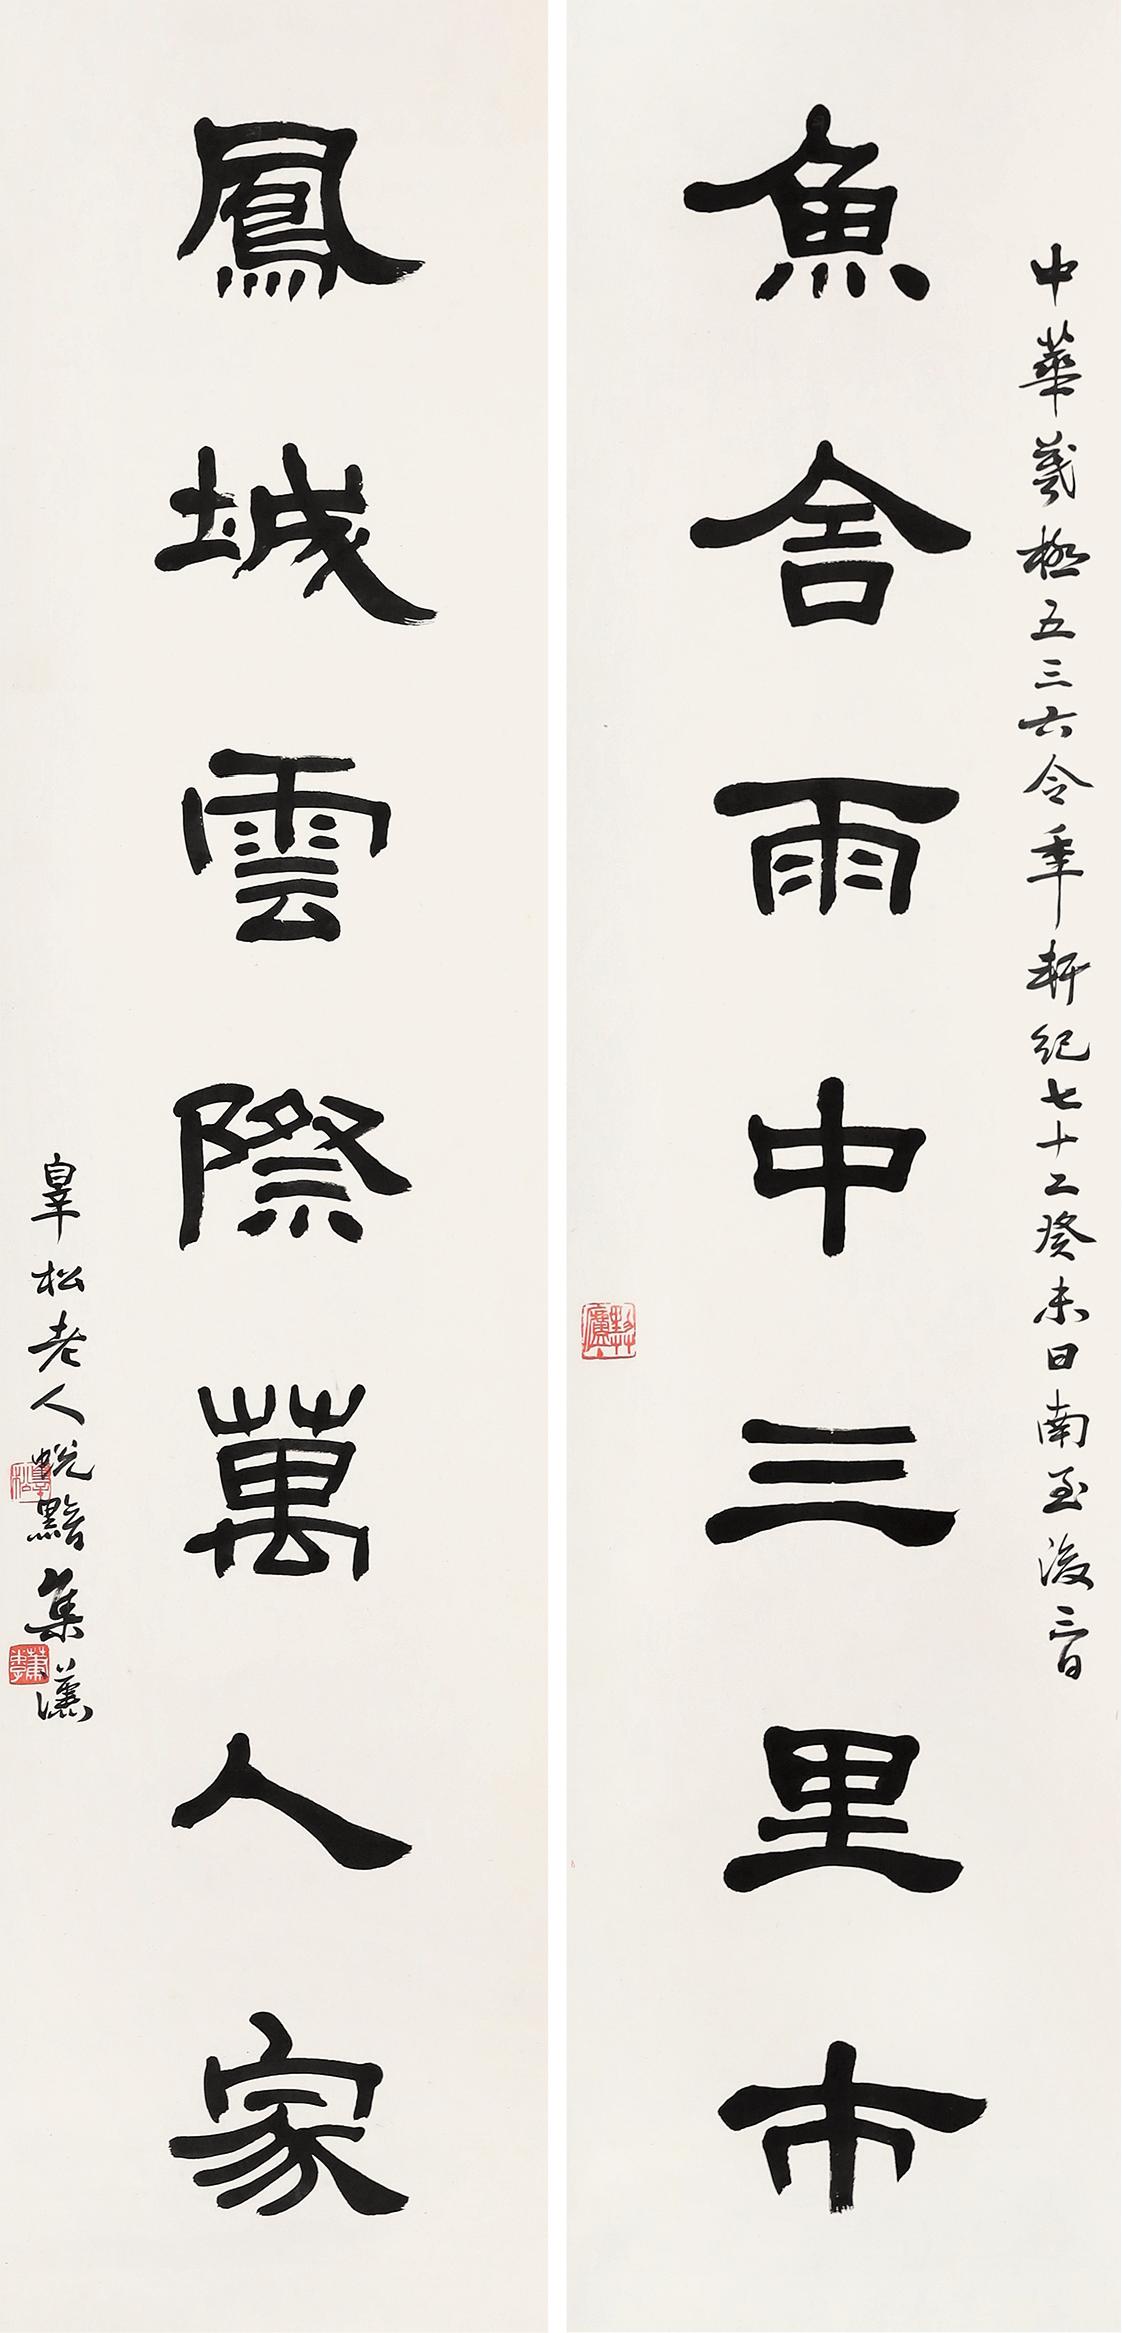 中華羲極五三六令年軒紀七十二癸未日南至後三日
魚舍雨中三里市
鳳城雲際萬人家
皋松老人蜕黯集漢